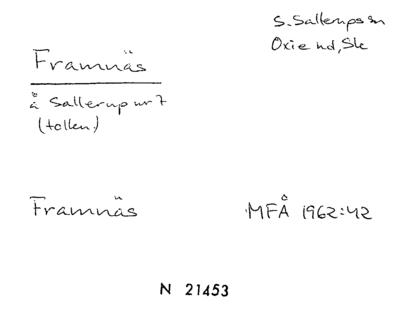 S. Sallerups sn
Oxie hd, Sk
Framnäs
å Sallerup nr 7
(tollen.)
Framnäs
MFÅ 1962:42
N 21453